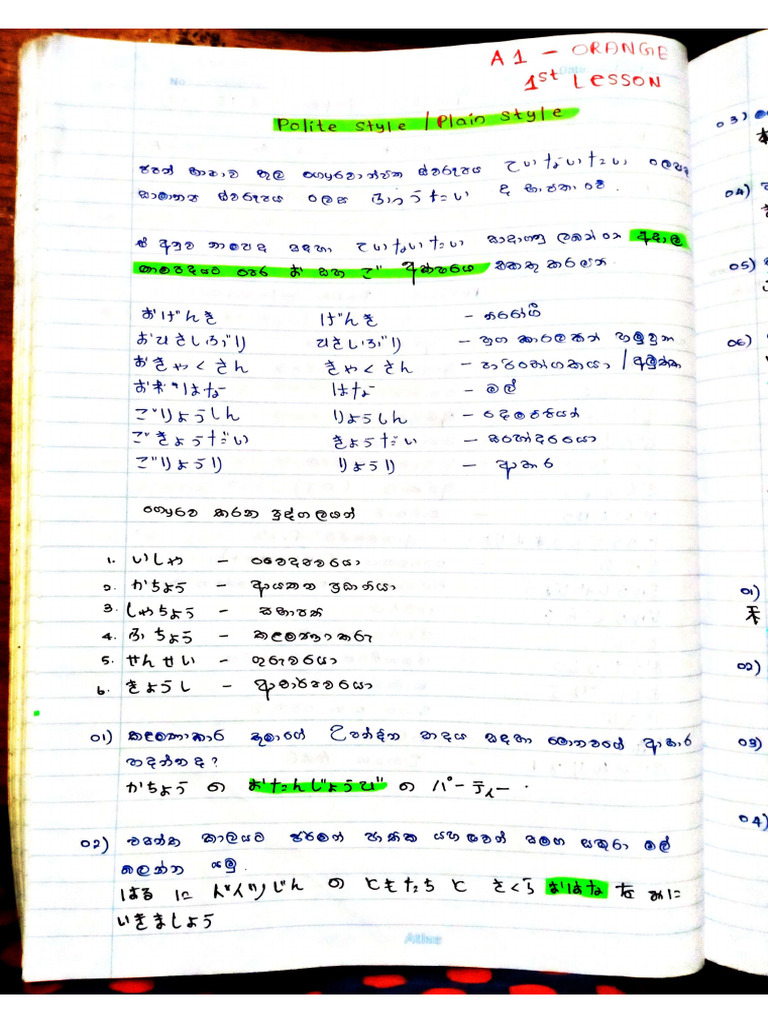 A1 - ORANGE
1st LESSON
No
Date
Polite style / Plain style
ජපන් භාෂාව තුල ගෞරවාන්විත ස්වරූපය ていねいたい ලෙසද
සාමාන්‍ය ස්වරූපය ලෙස ふつうたい ද භාවිතා වේ.
ඒ අනුව නාමපද සඳහා ていねいたい සාදාගනු ලබන්නේ අදාල
නාමපදයට පෙර お සහ ご අක්ෂරය එකතු කරමින
おげんき げんき - නිරෝගී
おひさしぶり ひさしぶり - කාලෙකින් හමුවුන
おきゃくさん きゃくさん - පාරිභෝගිකයා / අමුත්තා
おはな はな - මල්
ごりょうしん りょうしん - දෙමව්පියන්
ごきょうだい きょうだい - සහෝදරයා
ごりょうり りょうり - ආහාර
ගෞරව කරන පුද්ගලයන්
1. いしゃ - වෛද්‍යවරයා
2. かちょう - ආයතන ප්‍රධානියා
3. しゃちょう - සභාපති
4. ぶちょう - කළමනාකරු
5. せんせい - ගුරුවරයා
6. きょうし - ආචාර්යවරයා
01) කළමණාකාර තුමාගේ උපන්දින සාදය සඳහා මොනවගේ ආහාර
හදන්නද?
かちょう の おたんじょうび の パーティー.
02) වසන්ත කාලයට ජර්මන් ජාතික යහළුවන් සමග සකුරා මල්
බලන්න යමු.
はる に ドイツじん の ともだち と さくら おはな を みに
いきましょう
Atlas
03)
04)
05)
06)
01)
02)
03)
04)